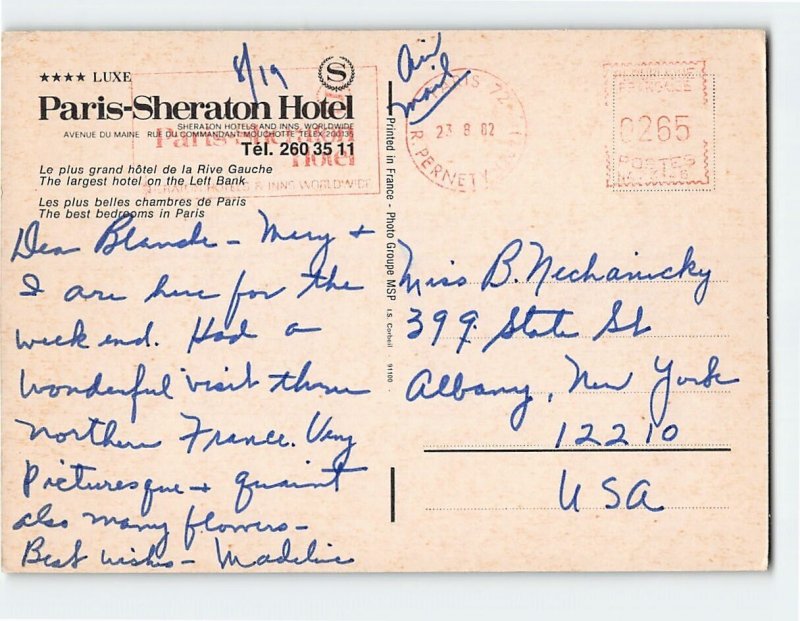 ★★★★ LUXE
Paris-Sheraton Hotel
SHERATON HOTELS AND INNS, WORLDWIDE
AVENUE DU MAINE RUE DU COMMANDANT MOUCHOTTE TELEX 200135
Tél. 260 35 11
Le plus grand hôtel de la Rive Gauche
The largest hotel on the Left Bank
Les plus belles chambres de Paris
The best bedrooms in Paris
8/19
Paris-Sheraton
Hotel
HOTELS & INNS WORLDWIDE
Dear Blanche - Mary +
I are here for the
week end. Had a
wonderful visit thru
northern France. Very
picturesque + quaint
also many flowers -
Best wishes - Madeline
Printed in France - Photo Groupe MSP I.S. Corbeil - 91100 -
Air
mail
PARIS
23 8 82
R. PERNETY
0265
POSTES
Miss B. Nechanicky
399 State St
Albany, New York
12210
USA